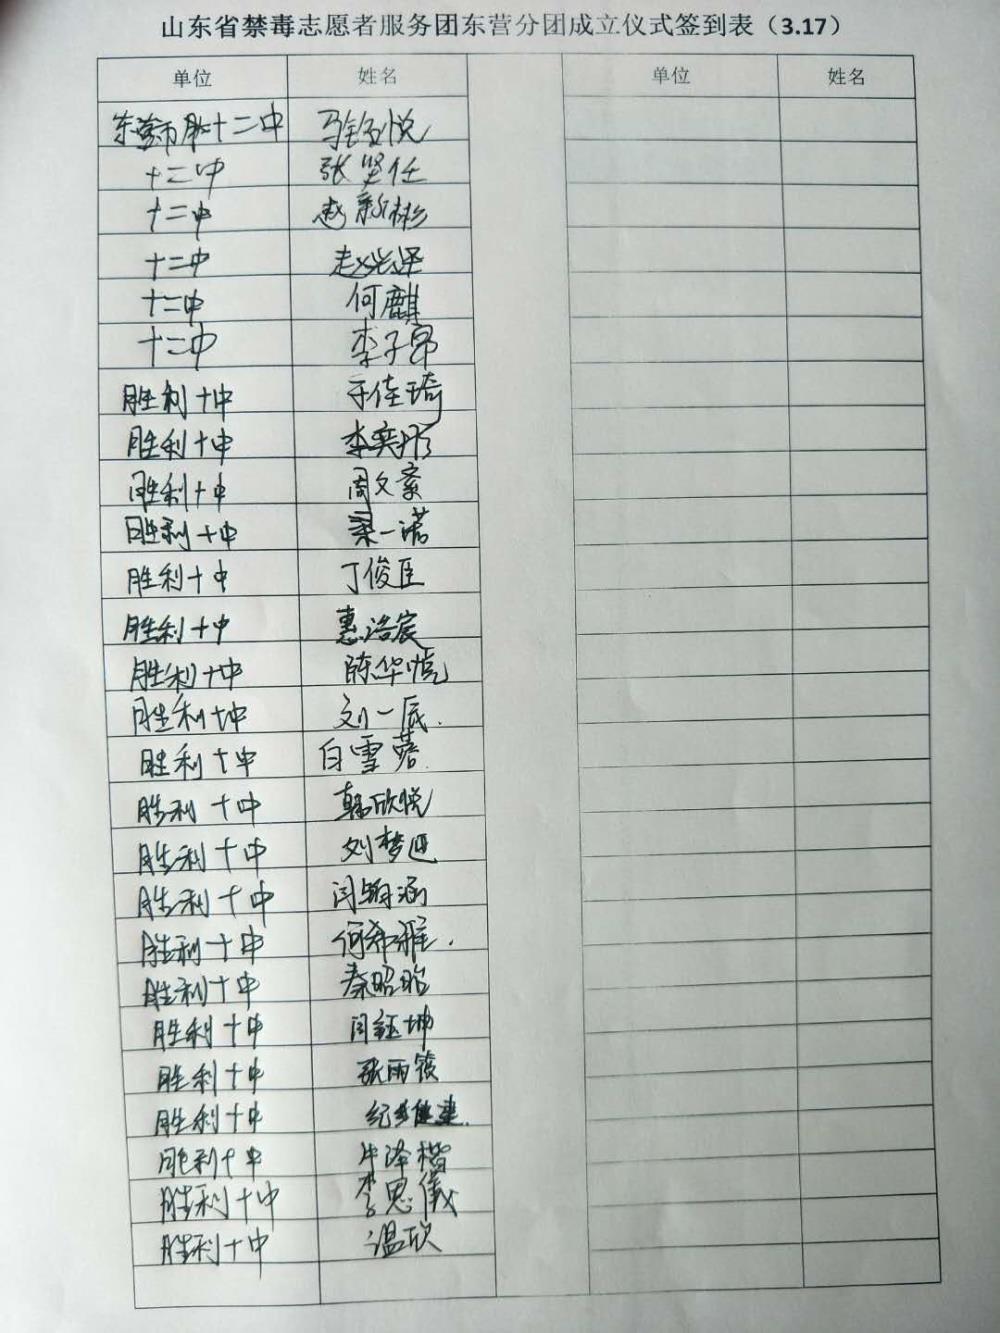 山东省禁毒志愿者服务团东营分团成立仪式签到表（3.17）
单位 姓名 单位 姓名
东营市胜十二中
十二中 张贤任
十二中 赵新彬
十二中 赵光泽
十二中 何麒
十二中 李子昂
胜利十中 于佳琦
胜利十中 李奕彤
胜利十中 周文豪
胜利十中 梁一诺
胜利十中 丁俊臣
胜利十中 惠浩宸
胜利十中 陈华恺
胜利十中 刘一辰.
胜利十中 白雪蓉
胜利十中 韩欣悦
胜利十中 刘梦迪
胜利十中 闫翰涵
胜利十中 何希雅.
胜利十中 秦昭昭
胜利十中 闫钰坤
胜利十中 张雨筱
胜利十中
胜利十中 牛泽楷
胜利十中 李思儀
胜利十中 温欣